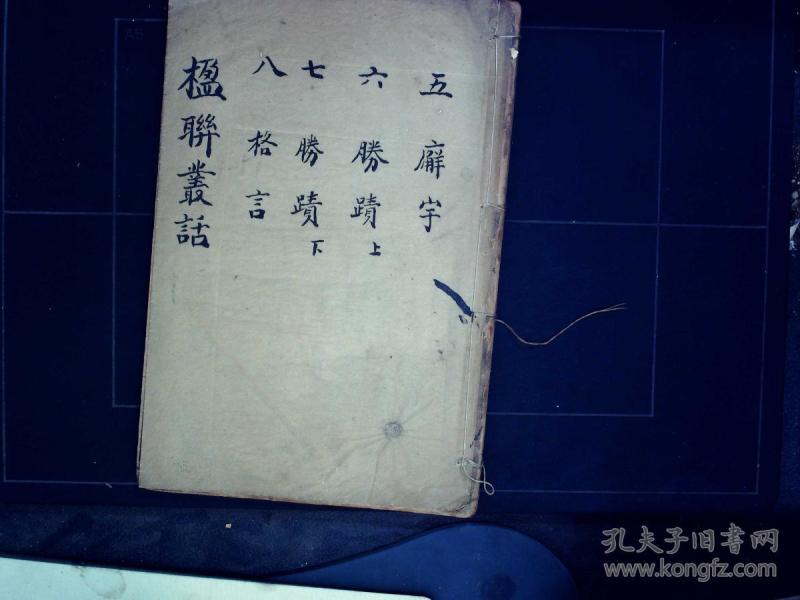 五 廨宇
六 勝蹟 上
七 勝蹟 下
八 格言
楹聯叢話
A5
孔夫子旧书网
www.kongfz.com